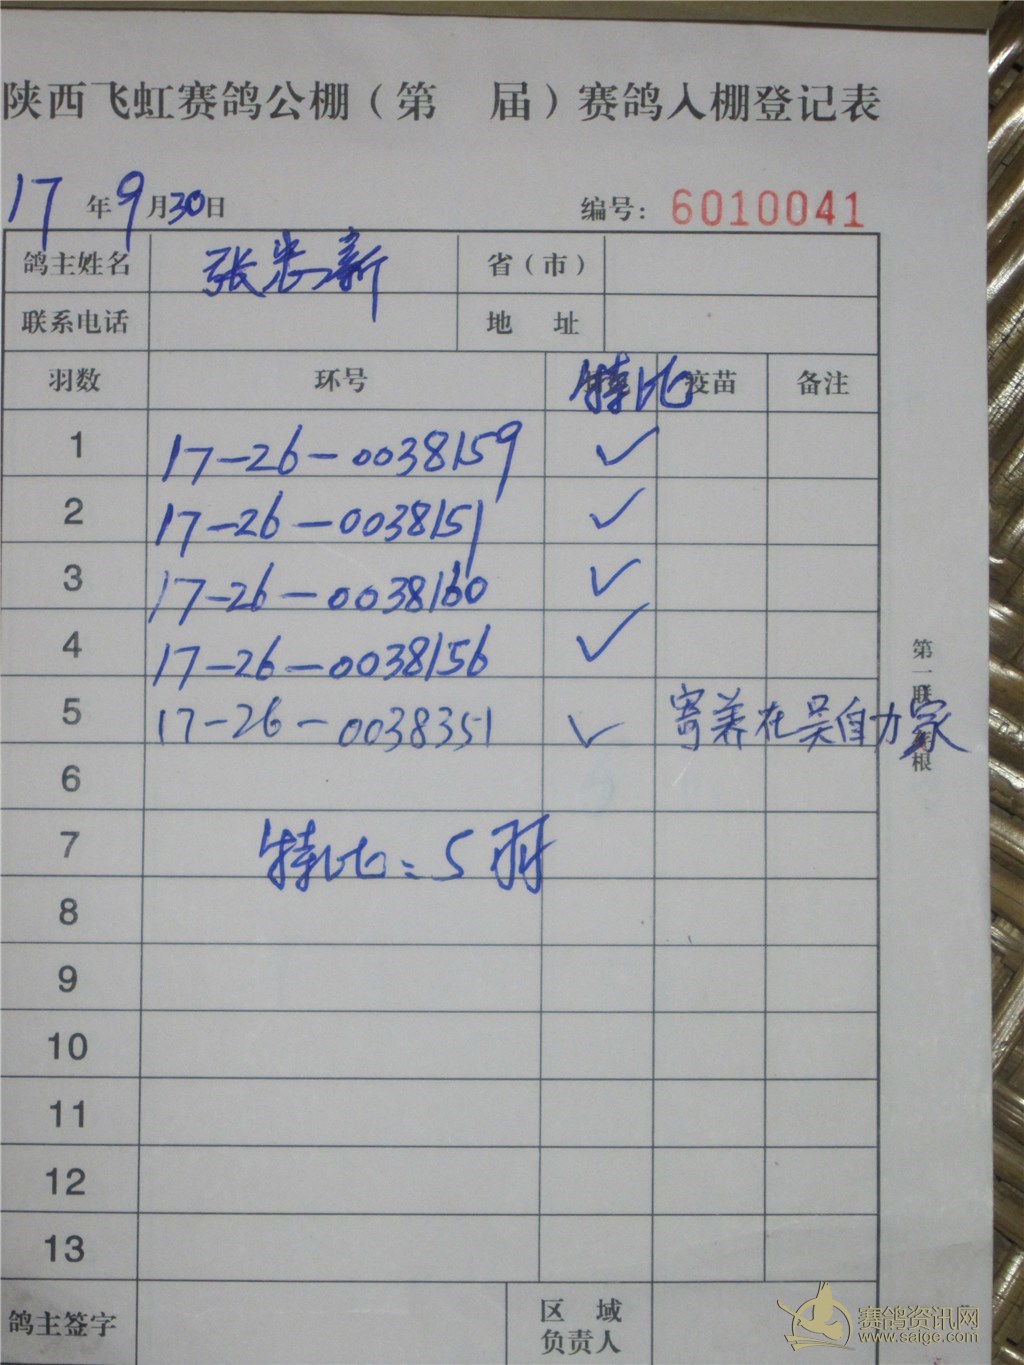 陕西飞虹赛鸽公棚（第 届）赛鸽入棚登记表
17年9月30日 编号：6010041
鸽主姓名 张忠新 省（市）
联系电话 地 址
羽数 环号 特比 疫苗 备注
1 17-26-0038159 ✓
2 17-26-0038151 ✓
3 17-26-0038160 ✓
4 17-26-0038156 ✓
5 17-26-0038351 ✓ 寄养在吴自力家
6
7 特比：5羽
8
9
10
11
12
13
鸽主签字 区 域
负责人
第一联 根
赛鸽资讯网
www.saige.com